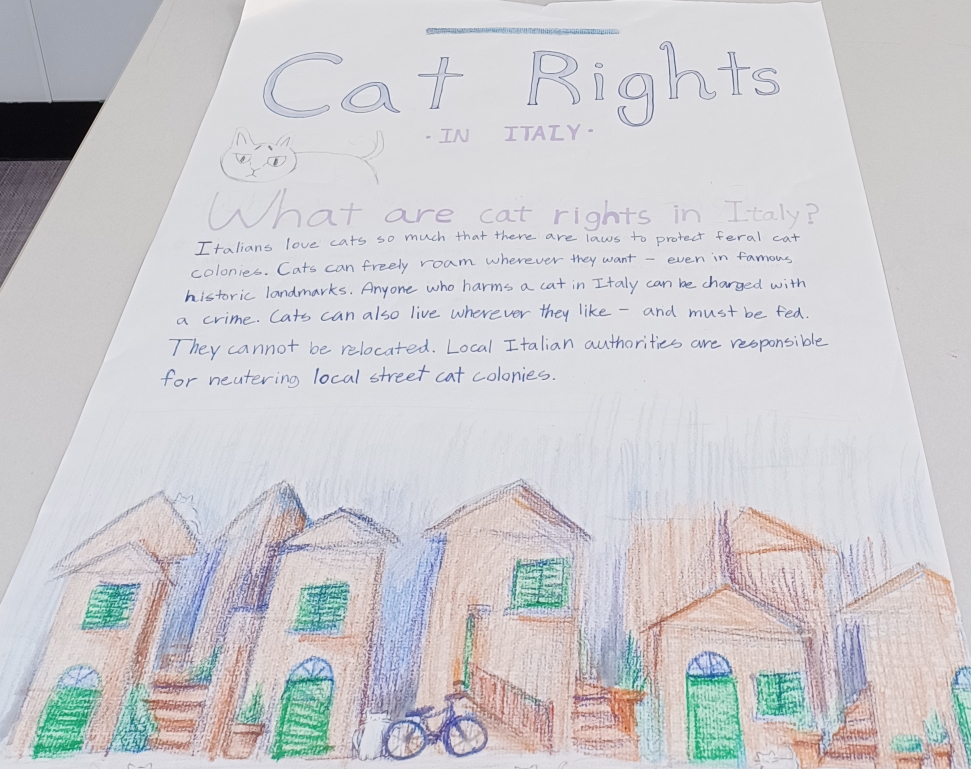 Cat Rights
·IN ITALY·
What are cat rights in Italy?
Italians love cats so much that there are laws to protect feral cat
colonies. Cats can freely roam wherever they want – even in famous
historic landmarks. Anyone who harms a cat in Italy can be charged with
a crime. Cats can also live wherever they like – and must be fed.
They cannot be relocated. Local Italian authorities are responsible
for neutering local street cat colonies.